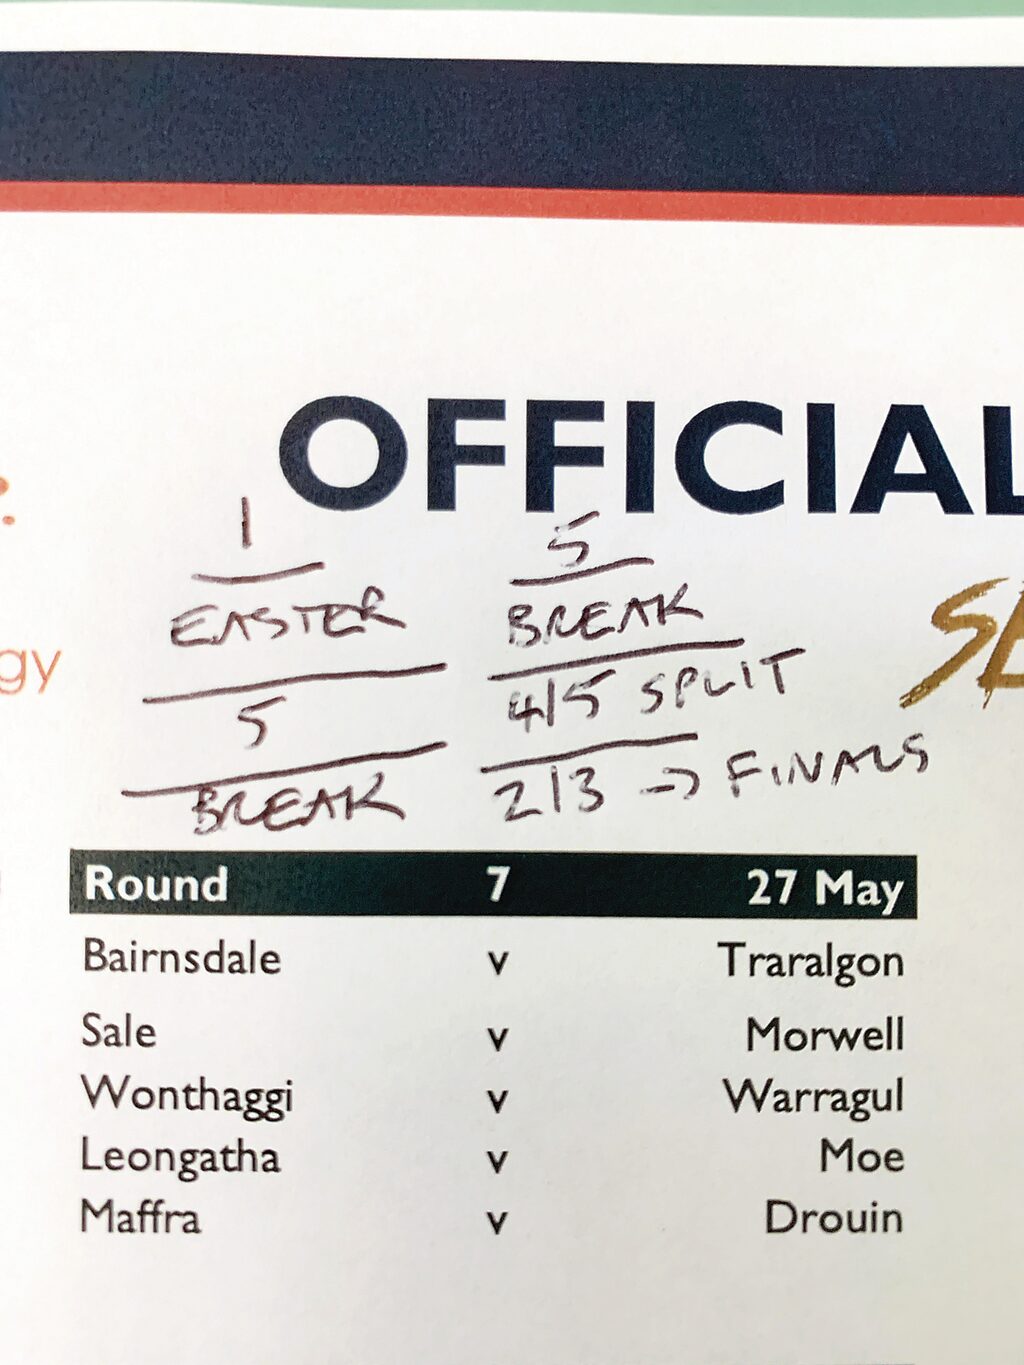 OFFICIAL
1
EASTER
5
BREAK
5
BREAK
4/5 SPLIT
2/3 -> FINALS
gy
SE
Round 7 27 May
Bairnsdale v Traralgon
Sale v Morwell
Wonthaggi v Warragul
Leongatha v Moe
Maffra v Drouin